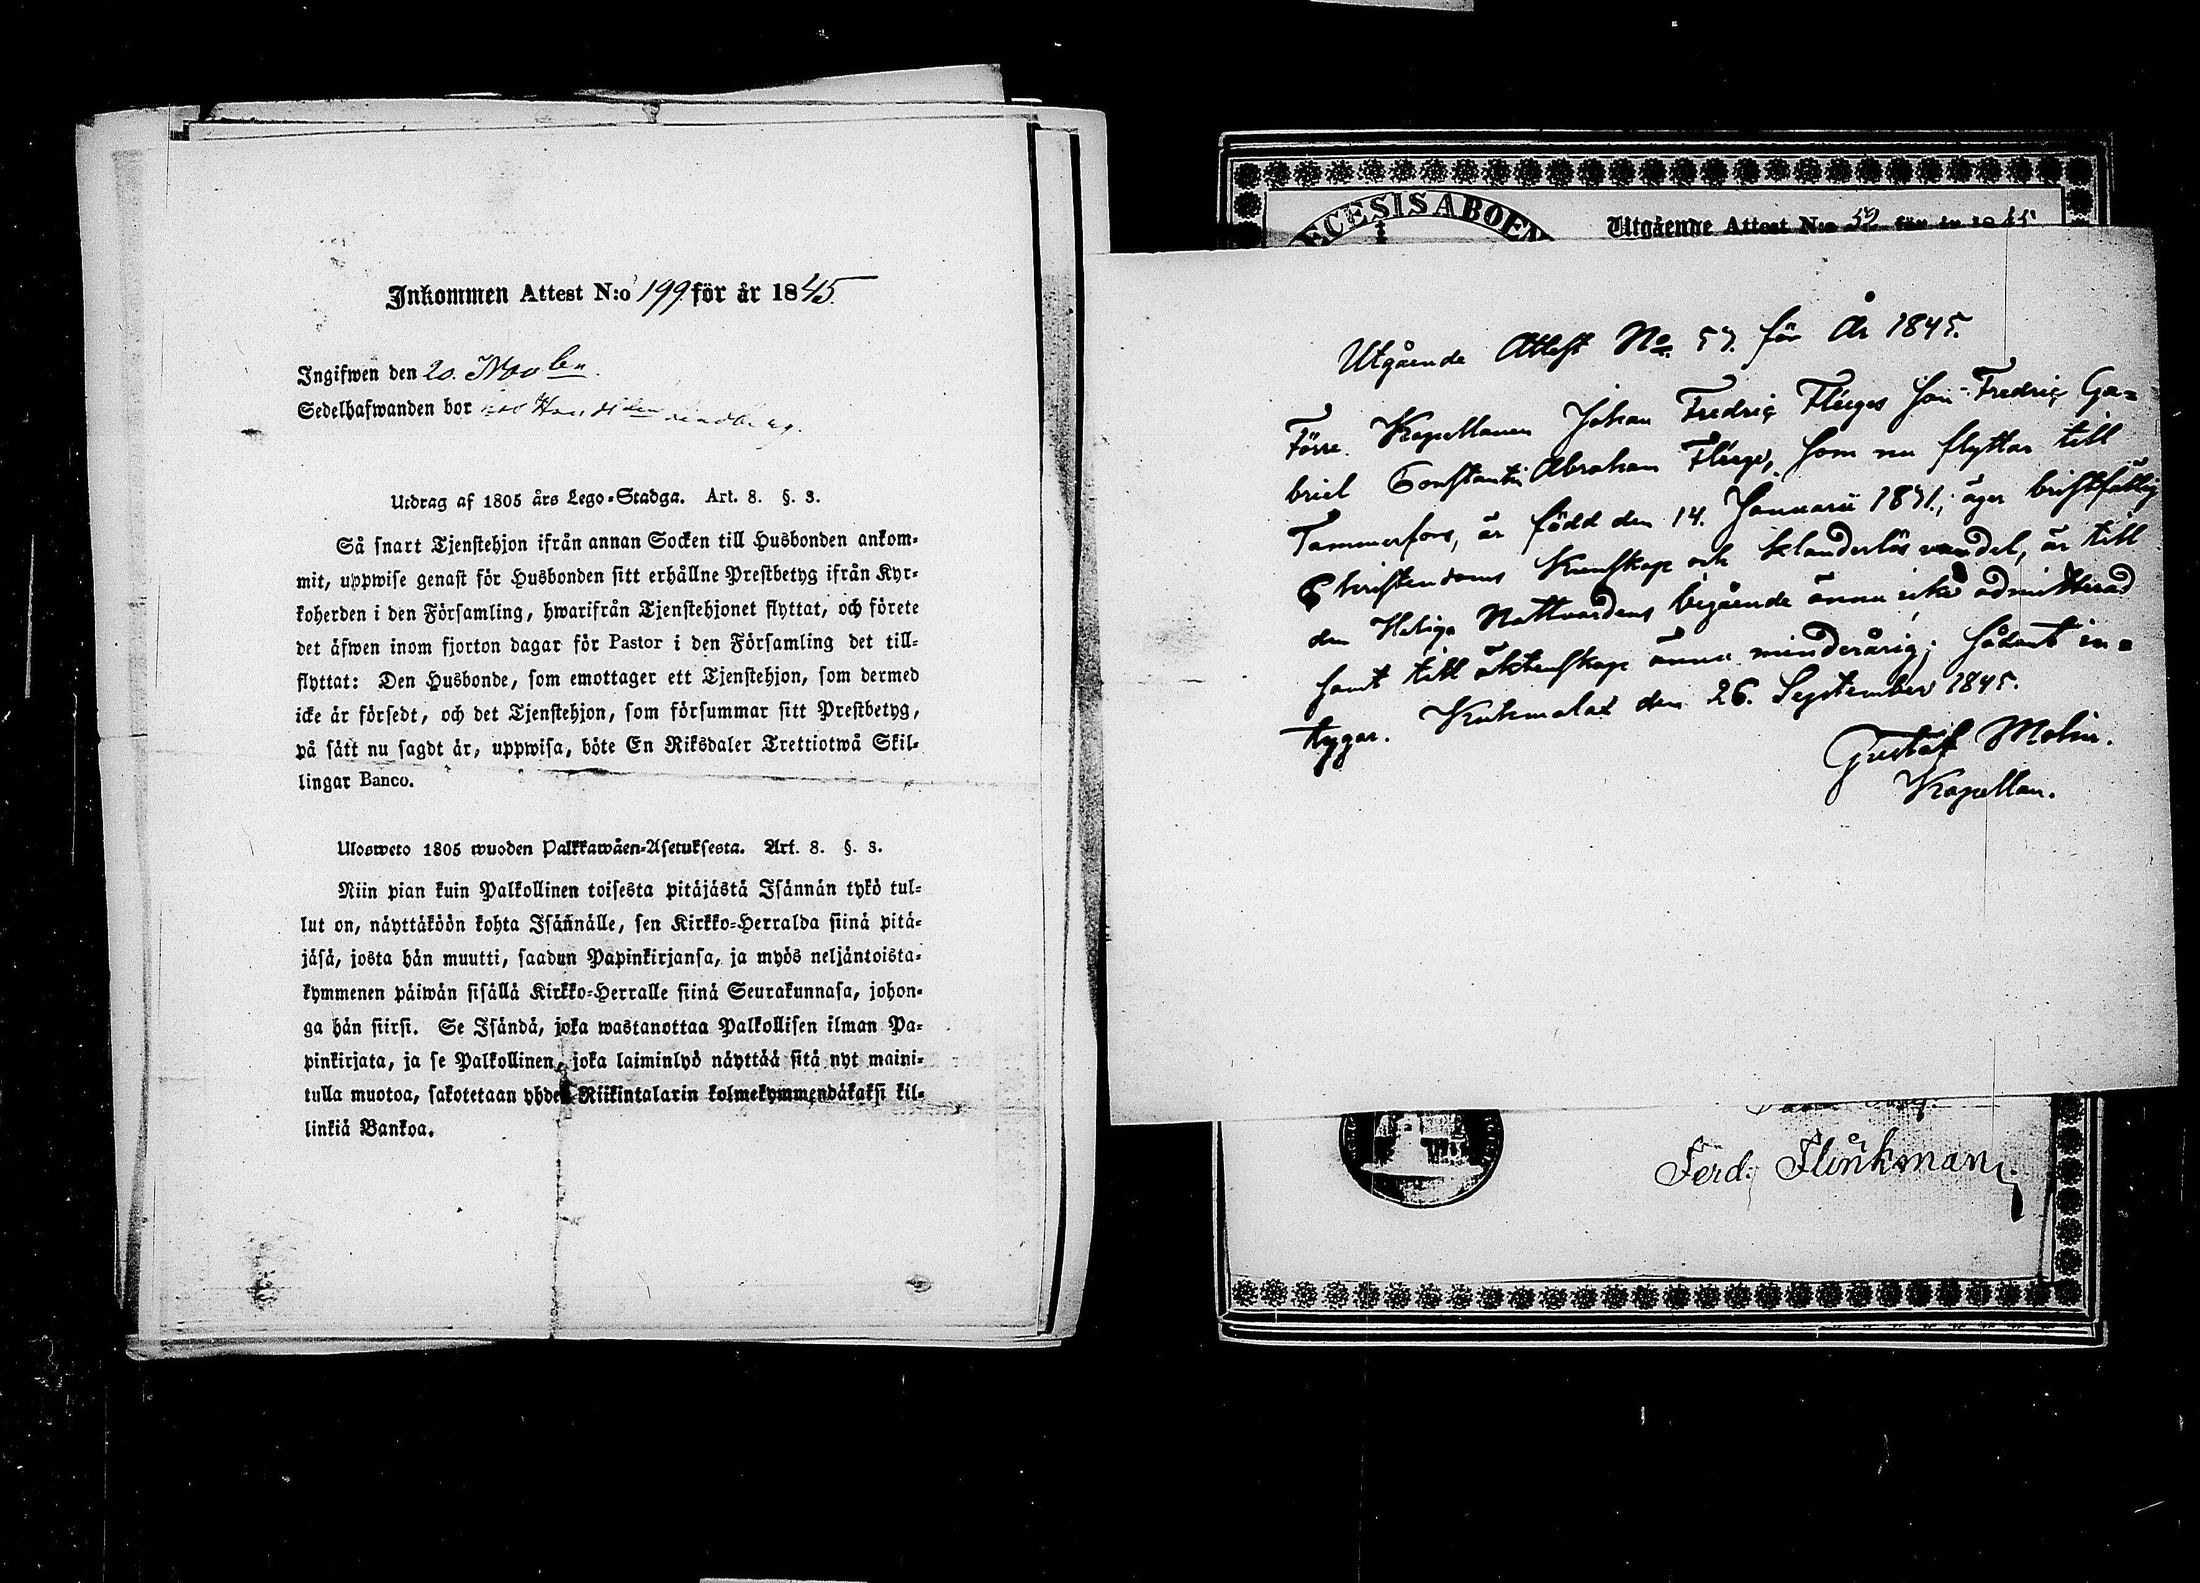 Inkommen Attest N:o 199 för år 1845.
Ingifwen den 20. Novbr.
Sedelhafwanden bor hos Handlden Lindberg.
Utdrag af 1805 års Lego-Stadga. Art. 8. §. 3.
Så snart Tjenstehjon ifrån annan Socken till Husbonden ankom-
mit, uppwise genast för Husbonden sitt erhållne Prestbetyg ifrån Kyr-
koherden i den Församling, hwarifrån Tjenstehjonet flyttat, och förete
det äfwen inom fjorton dagar för Pastor i den Församling det till-
flyttat: Den Husbonde, som emottager ett Tjenstehjon, som dermed
icke är försedt, och det Tjenstehjon, som försummar sitt Prestbetyg,
på sätt nu sagdt är, uppwisa, böte En Riksdaler Trettiotwå Skil-
lingar Banco.
Ulosweto 1805 wuoden Palkkawäen-Asetuksesta. Art. 8. §. 3.
Niin pian kuin Palkollinen toisesta pitäjästä Isännän tykö tul-
lut on, näyttäköön kohta Isännälle, sen Kirkko-Herralda siinä pitä-
jäsä, josta hän muutti, saadun Papinkirjansa, ja myös neljäntoista-
kymmenen päiwän sisällä Kirkko-Herralle siinä Seurakunnasa, johon-
ga hän siirsi. Se Isändä, joka wastanottaa Palkollisen ilman Pa-
pinkirjata, ja se Palkollinen, joka laiminlyö näyttää sitä nyt maini-
tulla muotoa, sakotetaan yhden Riikintalarin kolmekymmendäkaksi kil-
linkiä Bankoa.
ECESIS ABOEN
Utgående Attest N:o 52 för år 1845
Utgående Attest No. 57. för År 1845.
Förre Kapellanen Johan Fredric Fleeges son Fredric Ga-
briel Constantin Abraham Fleege, som nu flyttar till
Tammerfors, är född den 14. Januarii 1831.; äger briktfällig
Christendoms Kunskap och oklanderlös vandel, är till
den Heliga Nattvardens begående ännu icke admitterad
samt till äktenskap ännu minderårig; sådant in-
tygar. Kuhmalax den 26. September 1845.
Gustaf Molin.
Kapellan.
Ferd. Flinkman